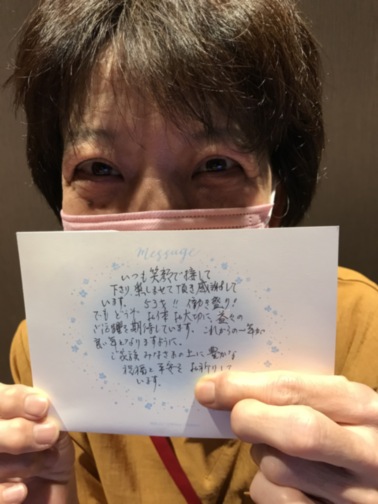 message
いつも笑顔で接して
下さり、楽しませて頂き感謝して
います。53才!! 働き盛り!
でもどうぞ、お体お大切に、益々の
ご活躍を期待しています。これからの一年が
良い年となりますように、
ご家族みなさまの上に豊かな
祝福と平安をお祈りして
います。